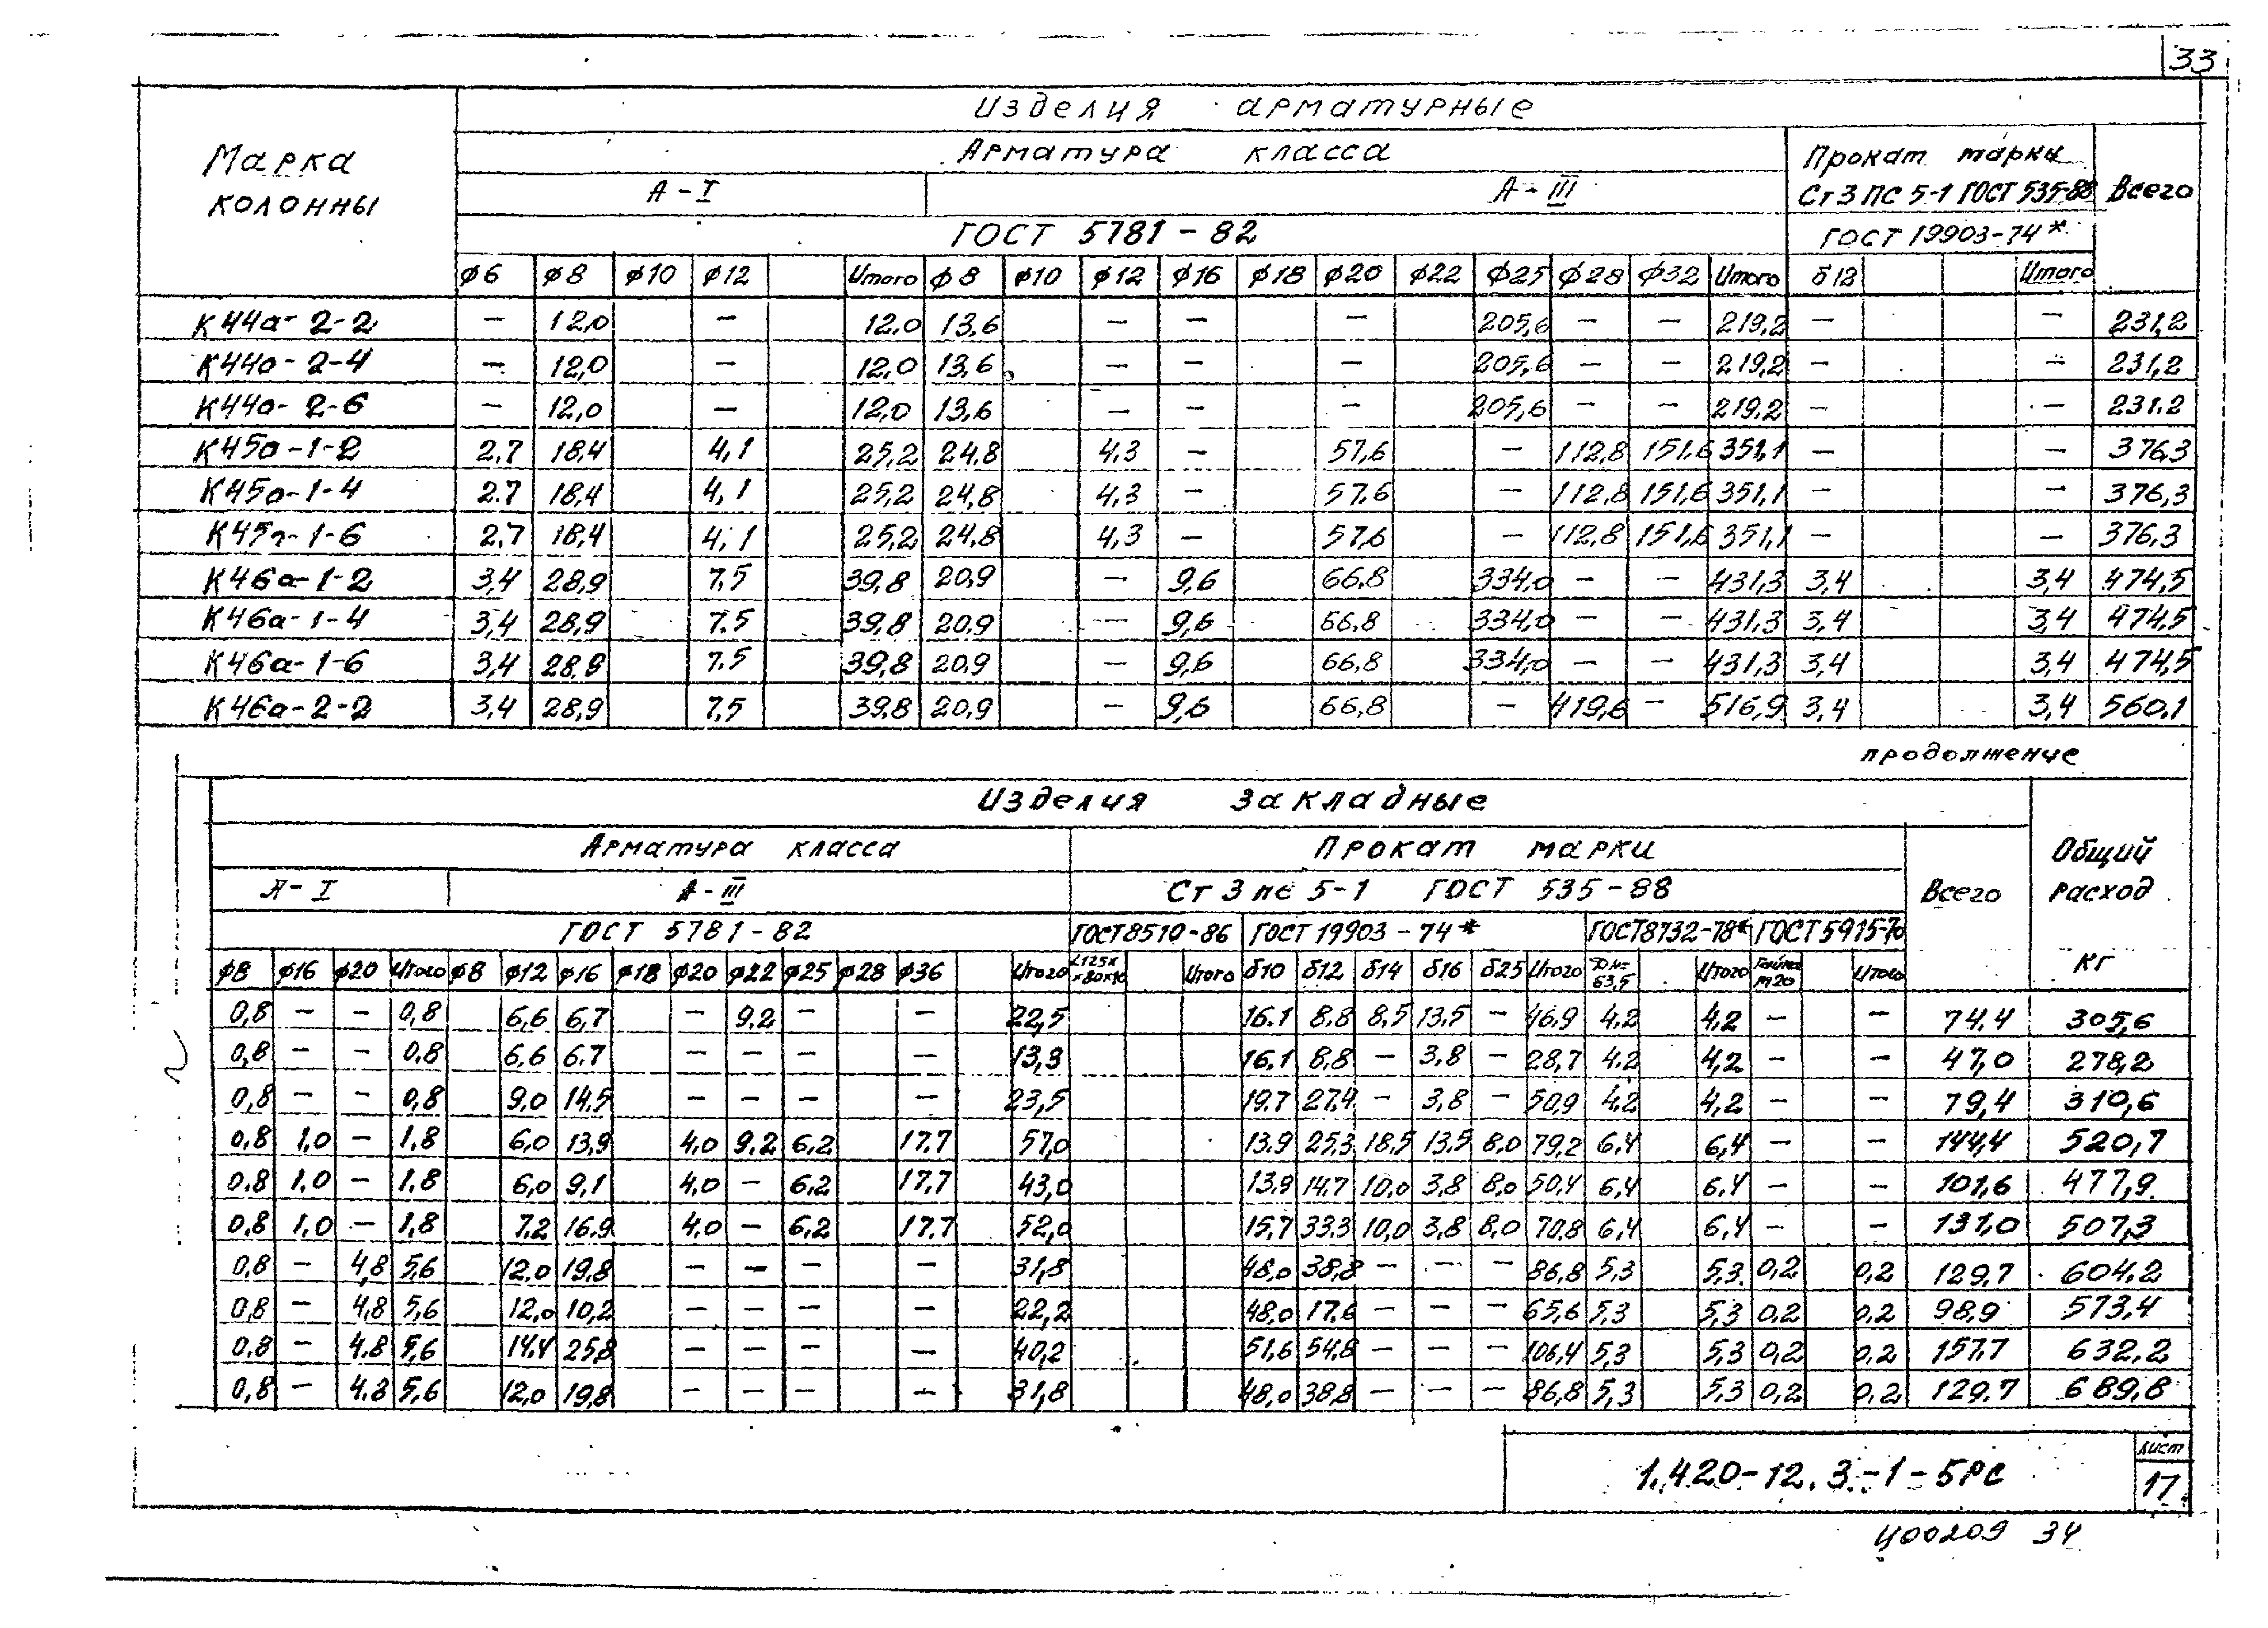 33
Изделия арматурные
Марка колонны
Арматура класса
Прокат марки
А-I А-III
Ст3 ПС 5-1 ГОСТ 535-88 Всего
ГОСТ 5781-82 ГОСТ 19903-74*
ф6 ф8 ф10 ф12 Итого ф8 ф10 ф12 ф16 ф18 ф20 ф22 ф25 ф28 ф32 Итого δ12 Итого
К44а-2-2 – 12,0 – 12,0 13,6 – – – 205,6 – – 219,2 – – 231,2
К44а-2-4 – 12,0 – 12,0 13,6 – – – 205,6 – – 219,2 – – 231,2
К44а-2-6 – 12,0 – 12,0 13,6 – – – 205,6 – – 219,2 – – 231.2
К45а-1-2 2.7 18,4 4,1 25,2 24,8 4.3 – 57,6 – 112,8 151,6 351,1 – – 376,3
К45а-1-4 2.7 18,4 4,1 25,2 24,8 4,3 – 57.6 – 112,8 151,6 351,1 – – 376,3
К45а-1-6 2,7 18,4 4,1 25,2 24,8 4,3 – 57,6 – 112,8 151,6 351,1 – – 376,3
К46а-1-2 3,4 28,9 7.5 39,8 20,9 – 9,6 66,8 334,0 – – 431,3 3,4 3,4 474,5
К46а-1-4 3,4 28,9 7.5 39,8 20,9 – 9,6 66,8 334,0 – – 431,3 3,4 3,4 474,5
К46а-1-6 3,4 28,9 7.5 39,8 20,9 – 9,6 66,8 334,0 – – 431,3 3,4 3,4 474,5
К46а-2-2 3,4 28,9 7,5 39,8 20,9 – 9,6 66,8 – 419,6 – 516,9 3,4 3,4 560.1
продолжение
Изделия закладные
Арматура класса Прокат марки Общий расход
А-I А-III Ст 3 пс 5-1 ГОСТ 535-88 Всего
ГОСТ 5781-82 ГОСТ 8510-86 ГОСТ 19903-74* ГОСТ 8732-78* ГОСТ 5915-70
ф8 ф16 ф20 Итого ф8 ф12 ф16 ф18 ф20 ф22 ф25 ф28 ф36 Итого L125х х80х10 Итого δ10 δ12 δ14 δ16 δ25 Итого Дн= 63,5 Итого Гайка М20 Итого кг
0,8 – – 0,8 6,6 6,7 – 9.2 – – 22,5 16.1 8.8 8,5 13,5 – 46.9 4.2 4,2 – – 74.4 305,6
0,8 – – 0.8 6,6 6.7 – – – – 13,3 16.1 8,8 – 3,8 – 28,7 4.2 4,2 – – 47,0 278,2
0,8 – – 0,8 9,0 14,5 – – – – 23,5 19.7 27.4 – 3,8 – 50,9 4.2 4,2 – – 79,4 310,6
0,8 1,0 – 1,8 6,0 13,9 4,0 9,2 6,2 17.7 57,0 13.9 25,3 18,5 13,5 8,0 79,2 6,4 6,4 – – 144,4 520,7
0,8 1.0 – 1,8 6,0 9,1 4,0 – 6,2 17.7 43,0 13,9 14,7 10,0 3,8 8,0 50,4 6,4 6.4 – – 101,6 477,9
0,8 1,0 – 1,8 7.2 16,9 4,0 – 6,2 17.7 52,0 15,7 33,3 10,0 3,8 8,0 70,8 6,4 6,4 – – 131,0 507,3
0,8 – 4,8 5,6 12,0 19,8 – – – – 31,8 48,0 38,8 – – – 86,8 5,3 5,3 0,2 0,2 129,7 604,2
0,8 – 4,8 5,6 12,0 10,2 – – – – 22,2 48,0 17,6 – – – 65,6 5,3 5,3 0,2 0,2 98,9 573,4
0,8 – 4.8 5,6 14,4 25,8 – – – – 40,2 51,6 54,8 – – – 106,4 5,3 5,3 0,2 0,2 157.7 632,2
0,8 – 4.8 5,6 12,0 19,8 – – – – 31,8 48,0 38,8 – – – 86,8 5,3 5,3 0,2 0,2 129.7 689,8
1.420-12.3-1-5РС
лист
17
Ц00209 34